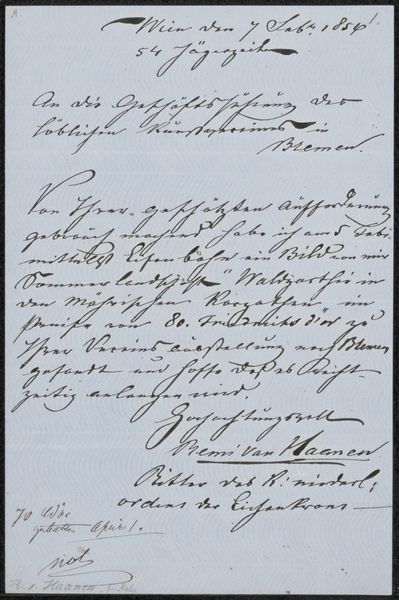 Wien den 7 Feb. 1854
54 Jägerzeile
An die Geschäftsführung des
löblichen Kunstvereines in
Bremen.
Von Ihrer geschätzten Aufforderung
gebrauch machend habe ich am Feb:
mittelst Eisenbahn ein Bild von mir
Sommerlandschaft "Waldparthie in
den Mährischen Karpathen im
Preise von 80. Friedrichs d'or zu
Ihrer Vereins ausstellung nach Bremen
gesandt und hoffe daß es recht-
zeitig anlangen wird.
Hochachtungsvoll
Remi van Haanen
Ritter des K: niederl:
ordens der Eichenkrone
70
April 1.
R. v. Haanen